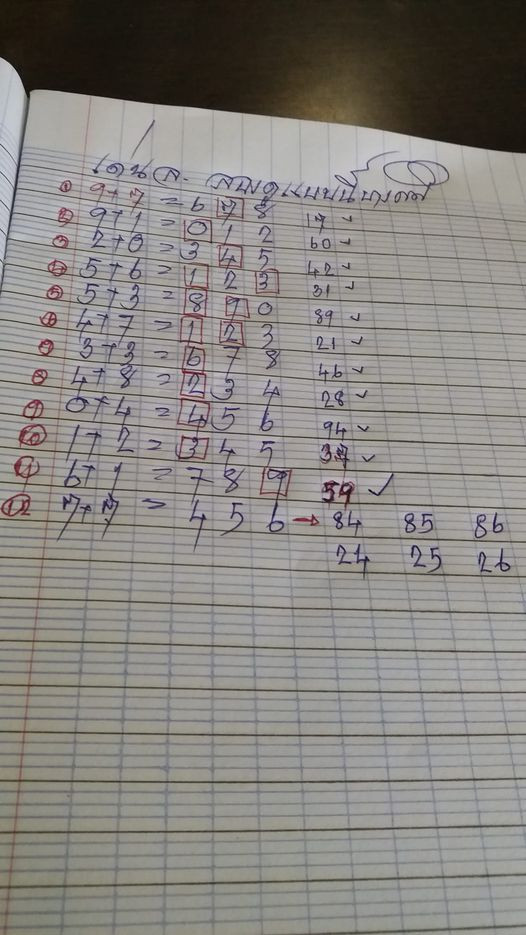 ① 9+7 = 6 7 8 17 ✓
② 9+1 = 0 1 2 60 ✓
③ 2+0 = 3 4 5 42 ✓
④ 5+6 = 1 2 3 31 ✓
⑤ 5+3 = 8 9 0 89 ✓
⑥ 4+7 = 1 2 3 21 ✓
⑦ 3+3 = 6 7 8 46 ✓
⑧ 4+8 = 2 3 4 28 ✓
⑨ 0+4 = 4 5 6 94 ✓
⑩ 1+2 = 3 4 5 37 ✓
⑪ 6+1 = 7 8 9 59 ✓
⑫ 7+7 = 4 5 6 → 84 85 86
24 25 26